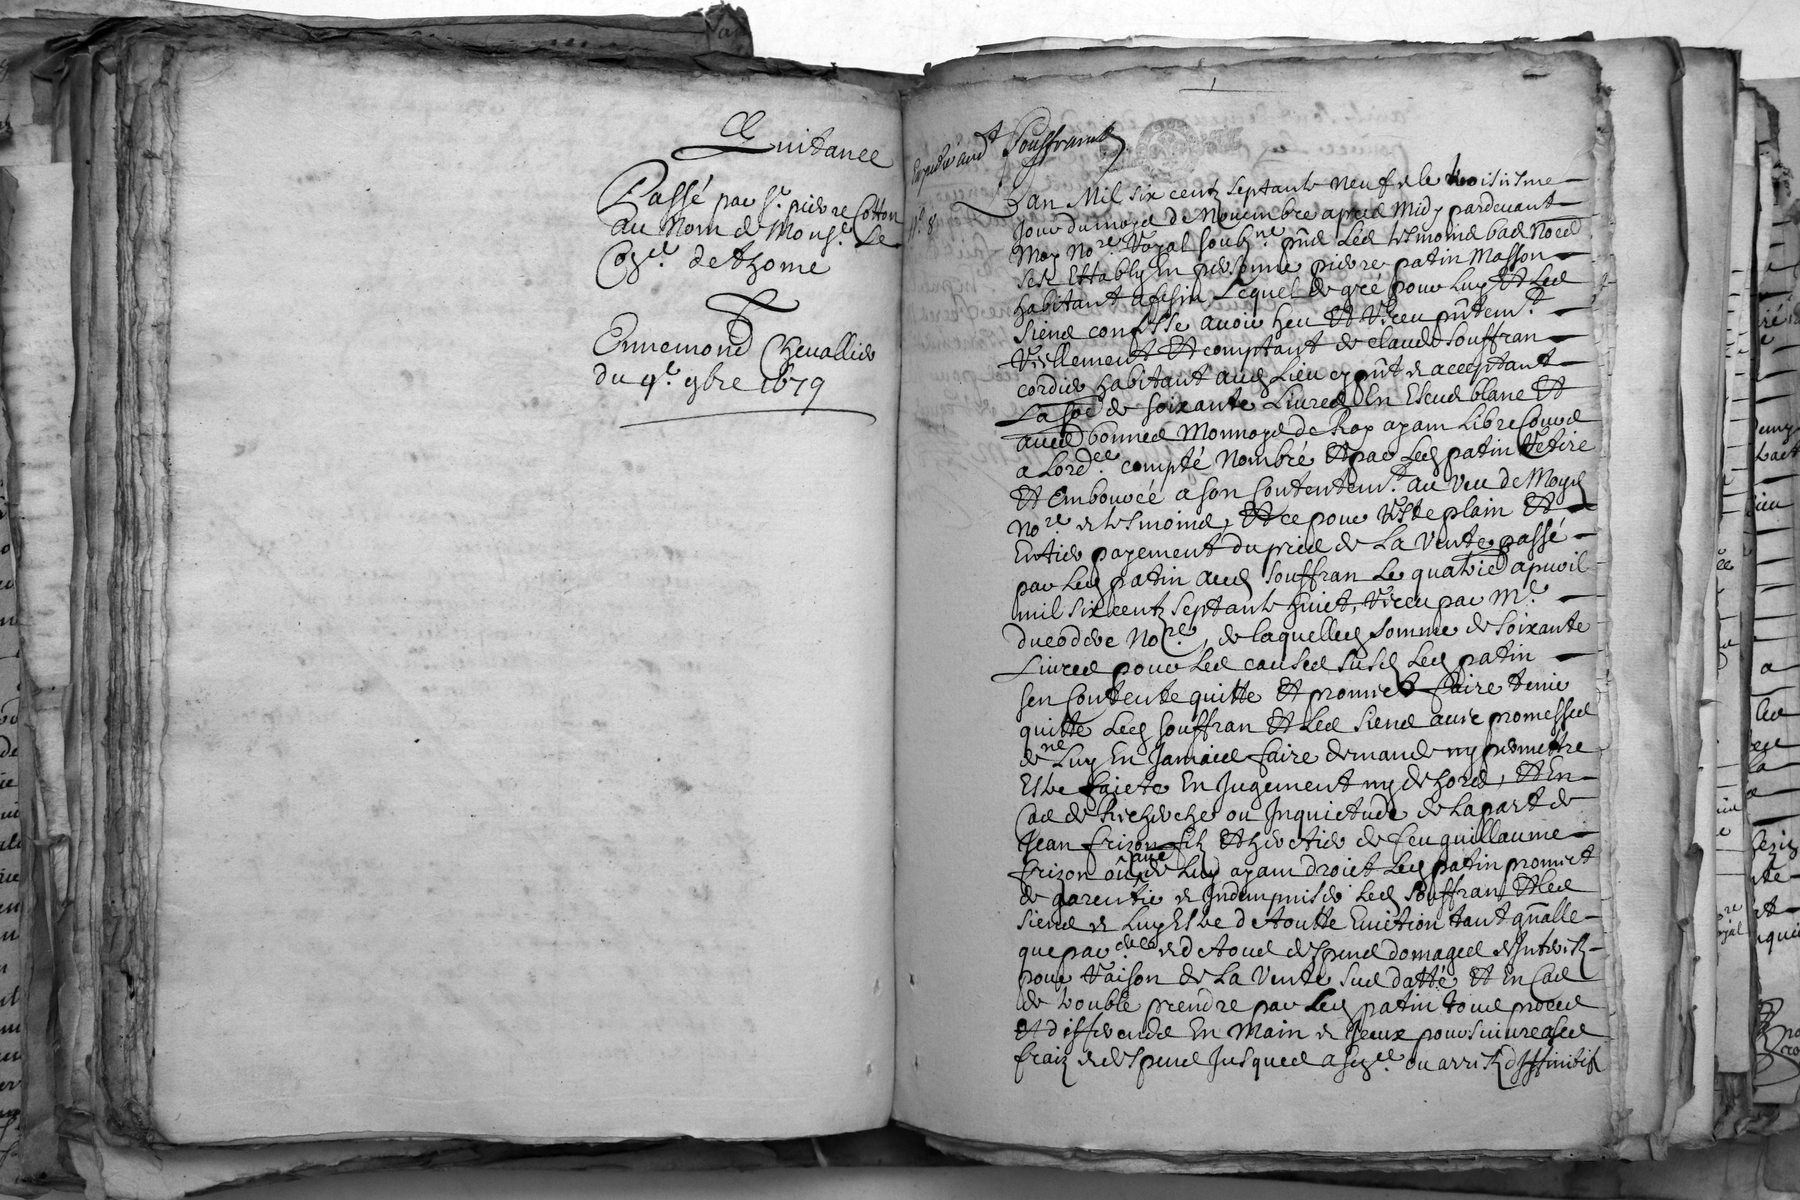 Quitance
Passé par Sr. pierre Cotton
au Nom de Monsr. Le
Conser. de thome
A
Ennemond Chevallier
du 9e. 9bre 1679
Expedié aud. Souffrand
Lan Mil six centz septante neuf & le troisiesme
Jour du moys de Novembre apres Midy pardevant
Moy Nore. Royal soubzne. pnd Les tesmoins bas Nommes
sest Estably En personne pierre patin Masson
habitant a Lequel de gré pour Luy Et Les
Siens confesse avoir heu Et Receu pntemt.
Reellement Et comptant de claude Souffran
cordier habitant aud Lieu cy pnt & acceptant
La som de soixante Livres En Escus blanc Et
autres bonnes Monnoyes de Roy ayant Libre Cours
a Lordre. compté Nombré Et par Led patin Retiré
Et Emboursé a son Contentemt. au veu de Moyd
Nore & tesmoins, Et ce pour Reste plain Et
Entier payement du prix de La Vente passé
par Led patin aud Souffran Le quatrie apvril
mil six centz septante huict, Receu par Me.
Nore., de laquelled somme de soixante
Livres pour Les causes susd Led patin
sen Contente quitte Et promet faire tenir
quitte Led Souffran Et Les Siens avec promesses
de ne Luy En Jamais faire demande ny permettre
Estre faicte En Jugement ny dehors, Et En
Cas de Recherche ou Inquietude de La part de
Jean frizon filz Et heritier de feu guillaume
frizon ou autre de Luy ayant droict Led patin promet
de garentir & Indempniser Led Souffran Et Les
Siens & Luy Estre de toutte Eviction tant gnalle
que parrere & de tous despens domages & Interestz
pour Raison de La Vente sus datté Et En Cas
de trouble prendre par Led patin tous proces
Et differends En Main & Iceux poursuivre a ses
fraiz & despens Jusques a Sence. ou arrest diffinitif